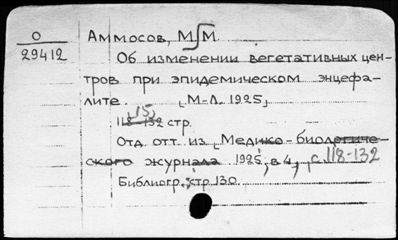 О
29412
Аммосов, М.М.
Об изменении вегетативных цен-
тров при эпидемическом энцефа-
лите. М-Л. 1925,
15,
118-132 стр.
Отд. отт. из „Медико-биологиче-
ского журнала 1925, в 4, с. 118-132
Библиогр.: стр. 130.